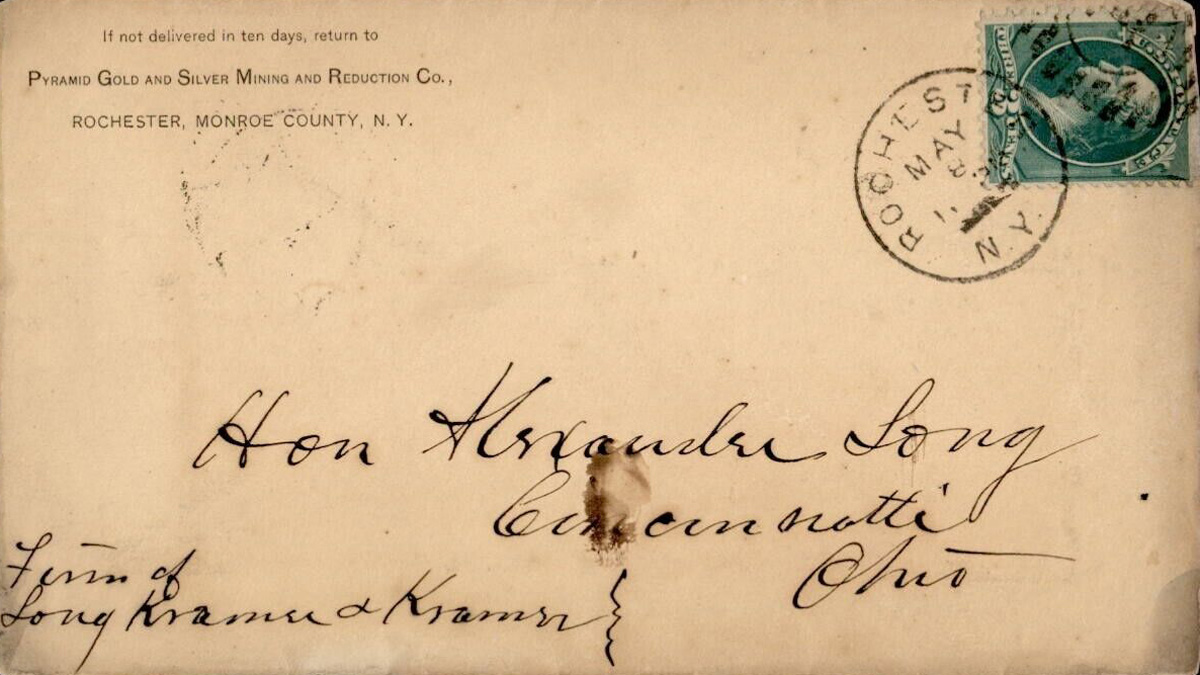 If not delivered in ten days, return to
PYRAMID GOLD AND SILVER MINING AND REDUCTION CO.,
ROCHESTER, MONROE COUNTY, N. Y.
ROCHESTE
MAY
N.Y.
Hon Alexander Long
Cincinnatti
Ohio
Firm of
Long Kramer & Kramer